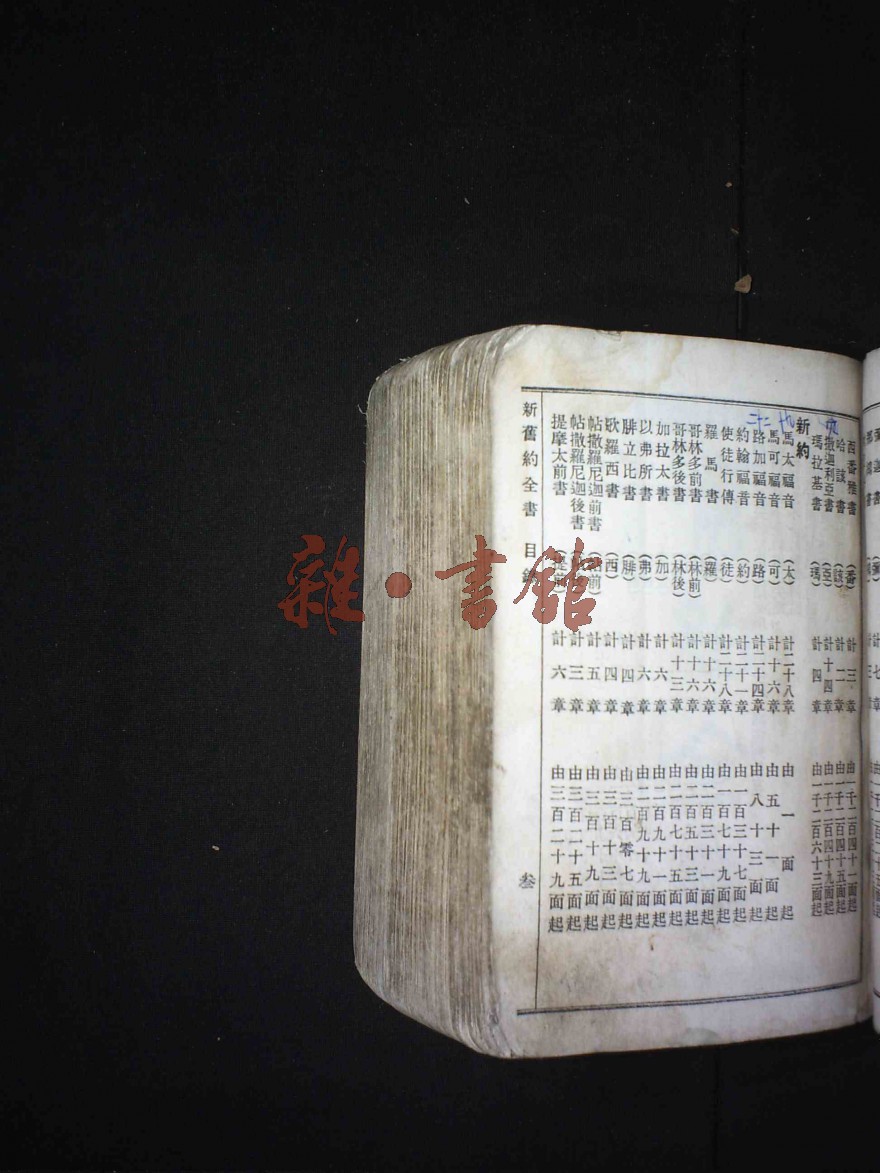 西番雅書 (番) 計三章 由一千二百四十一面起
哈該書 (該) 計二章 由一千二百四十五面起
撒迦利亞書 (亞) 計十四章 由一千二百四十九面起
瑪拉基書 (瑪) 計四章 由一千二百六十三面起
新約
馬太福音 (太) 計二十八章 由一面起
馬可福音 (可) 計十六章 由五十一面起
路加福音 (路) 計二十四章 由八十三面起
約翰福音 (約) 計二十一章 由一百三十七面起
使徒行傳 (徒) 計二十八章 由一百七十九面起
羅馬書 (羅) 計十六章 由二百三十一面起
哥林多前書 (林前) 計十六章 由二百五十三面起
哥林多後書 (林後) 計十三章 由二百七十五面起
加拉太書 (加) 計六章 由二百九十一面起
以弗所書 (弗) 計六章 由二百九十九面起
腓立比書 (腓) 計四章 由三百零七面起
歌羅西書 (西) 計四章 由三百十三面起
帖撒羅尼迦前書 前) 計五章 由三百十九面起
帖撒羅尼迦後書 計三章 由三百二十五面起
提摩太前書 (提前) 計六章 由三百二十九面起
新舊約全書 目錄 叁
雜·書館